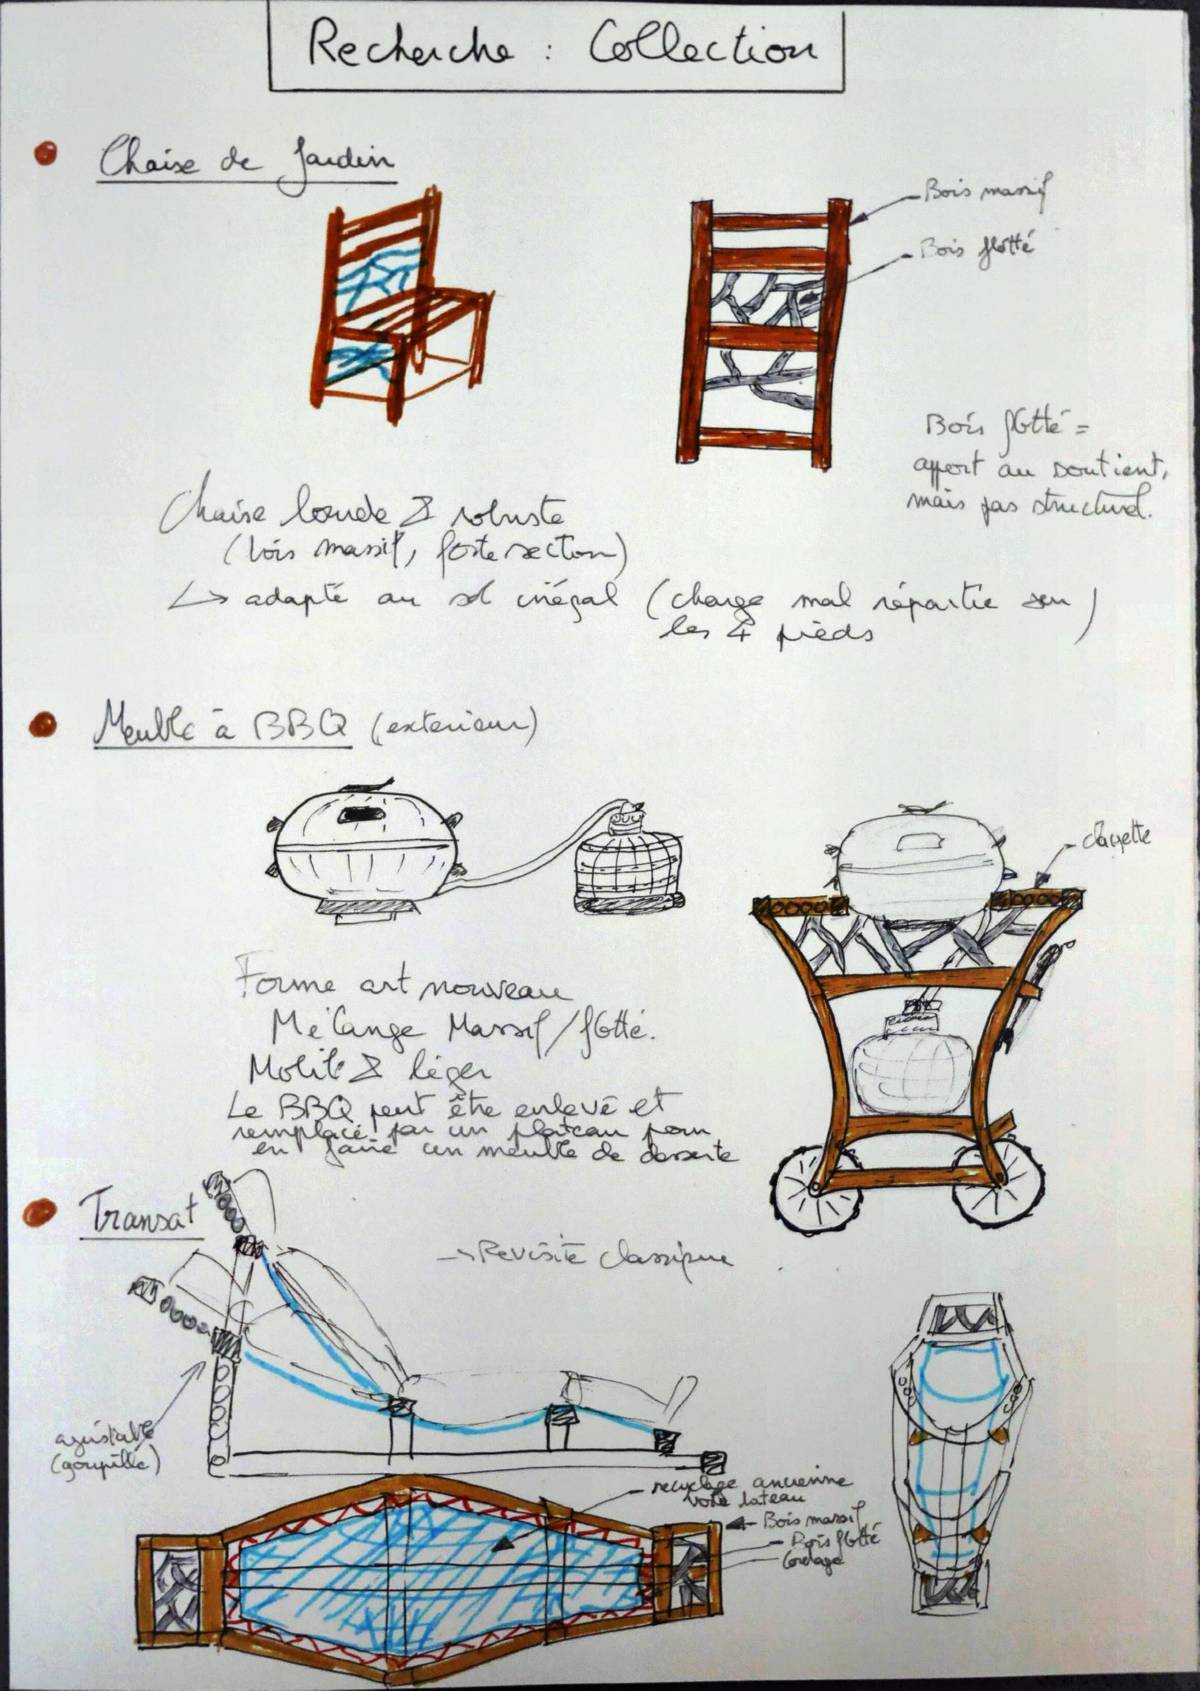 Recherche : Collection
Chaise de Jardin
Bois massif
Bois flotté
Bois flotté =
apport au soutient,
mais pas structurel.
Chaise lourde & robuste
(bois massif, forte section)
↳ adapté au sol inégal (charge mal répartie sur)
les 4 pieds
Meuble à BBQ (exterieur)
clayette
Forme art nouveau
Mélange Massif/flotté.
Mobile & léger
Le BBQ peut être enlevé et
remplacé par un plateau pour
en faire un meuble de desserte
Transat
→ Revisite classique
ajustable
(goupille)
recyclage ancienne
voile bateau
Bois massif
Bois flotté
Cordage